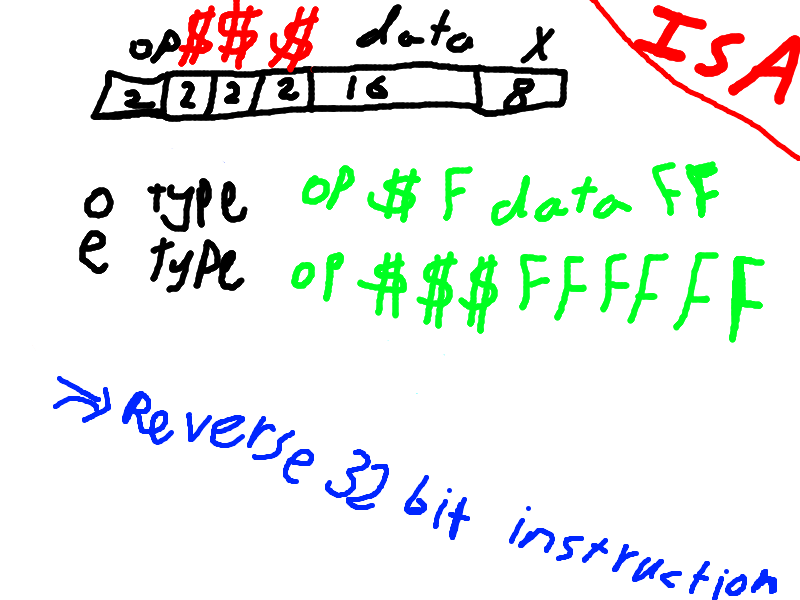 ISA
op $ $ $ data X
2 2 2 2 16 8
o type op $ F data FF
e type op $ $ $ F F F F F F
Reverse 32 bit instruction